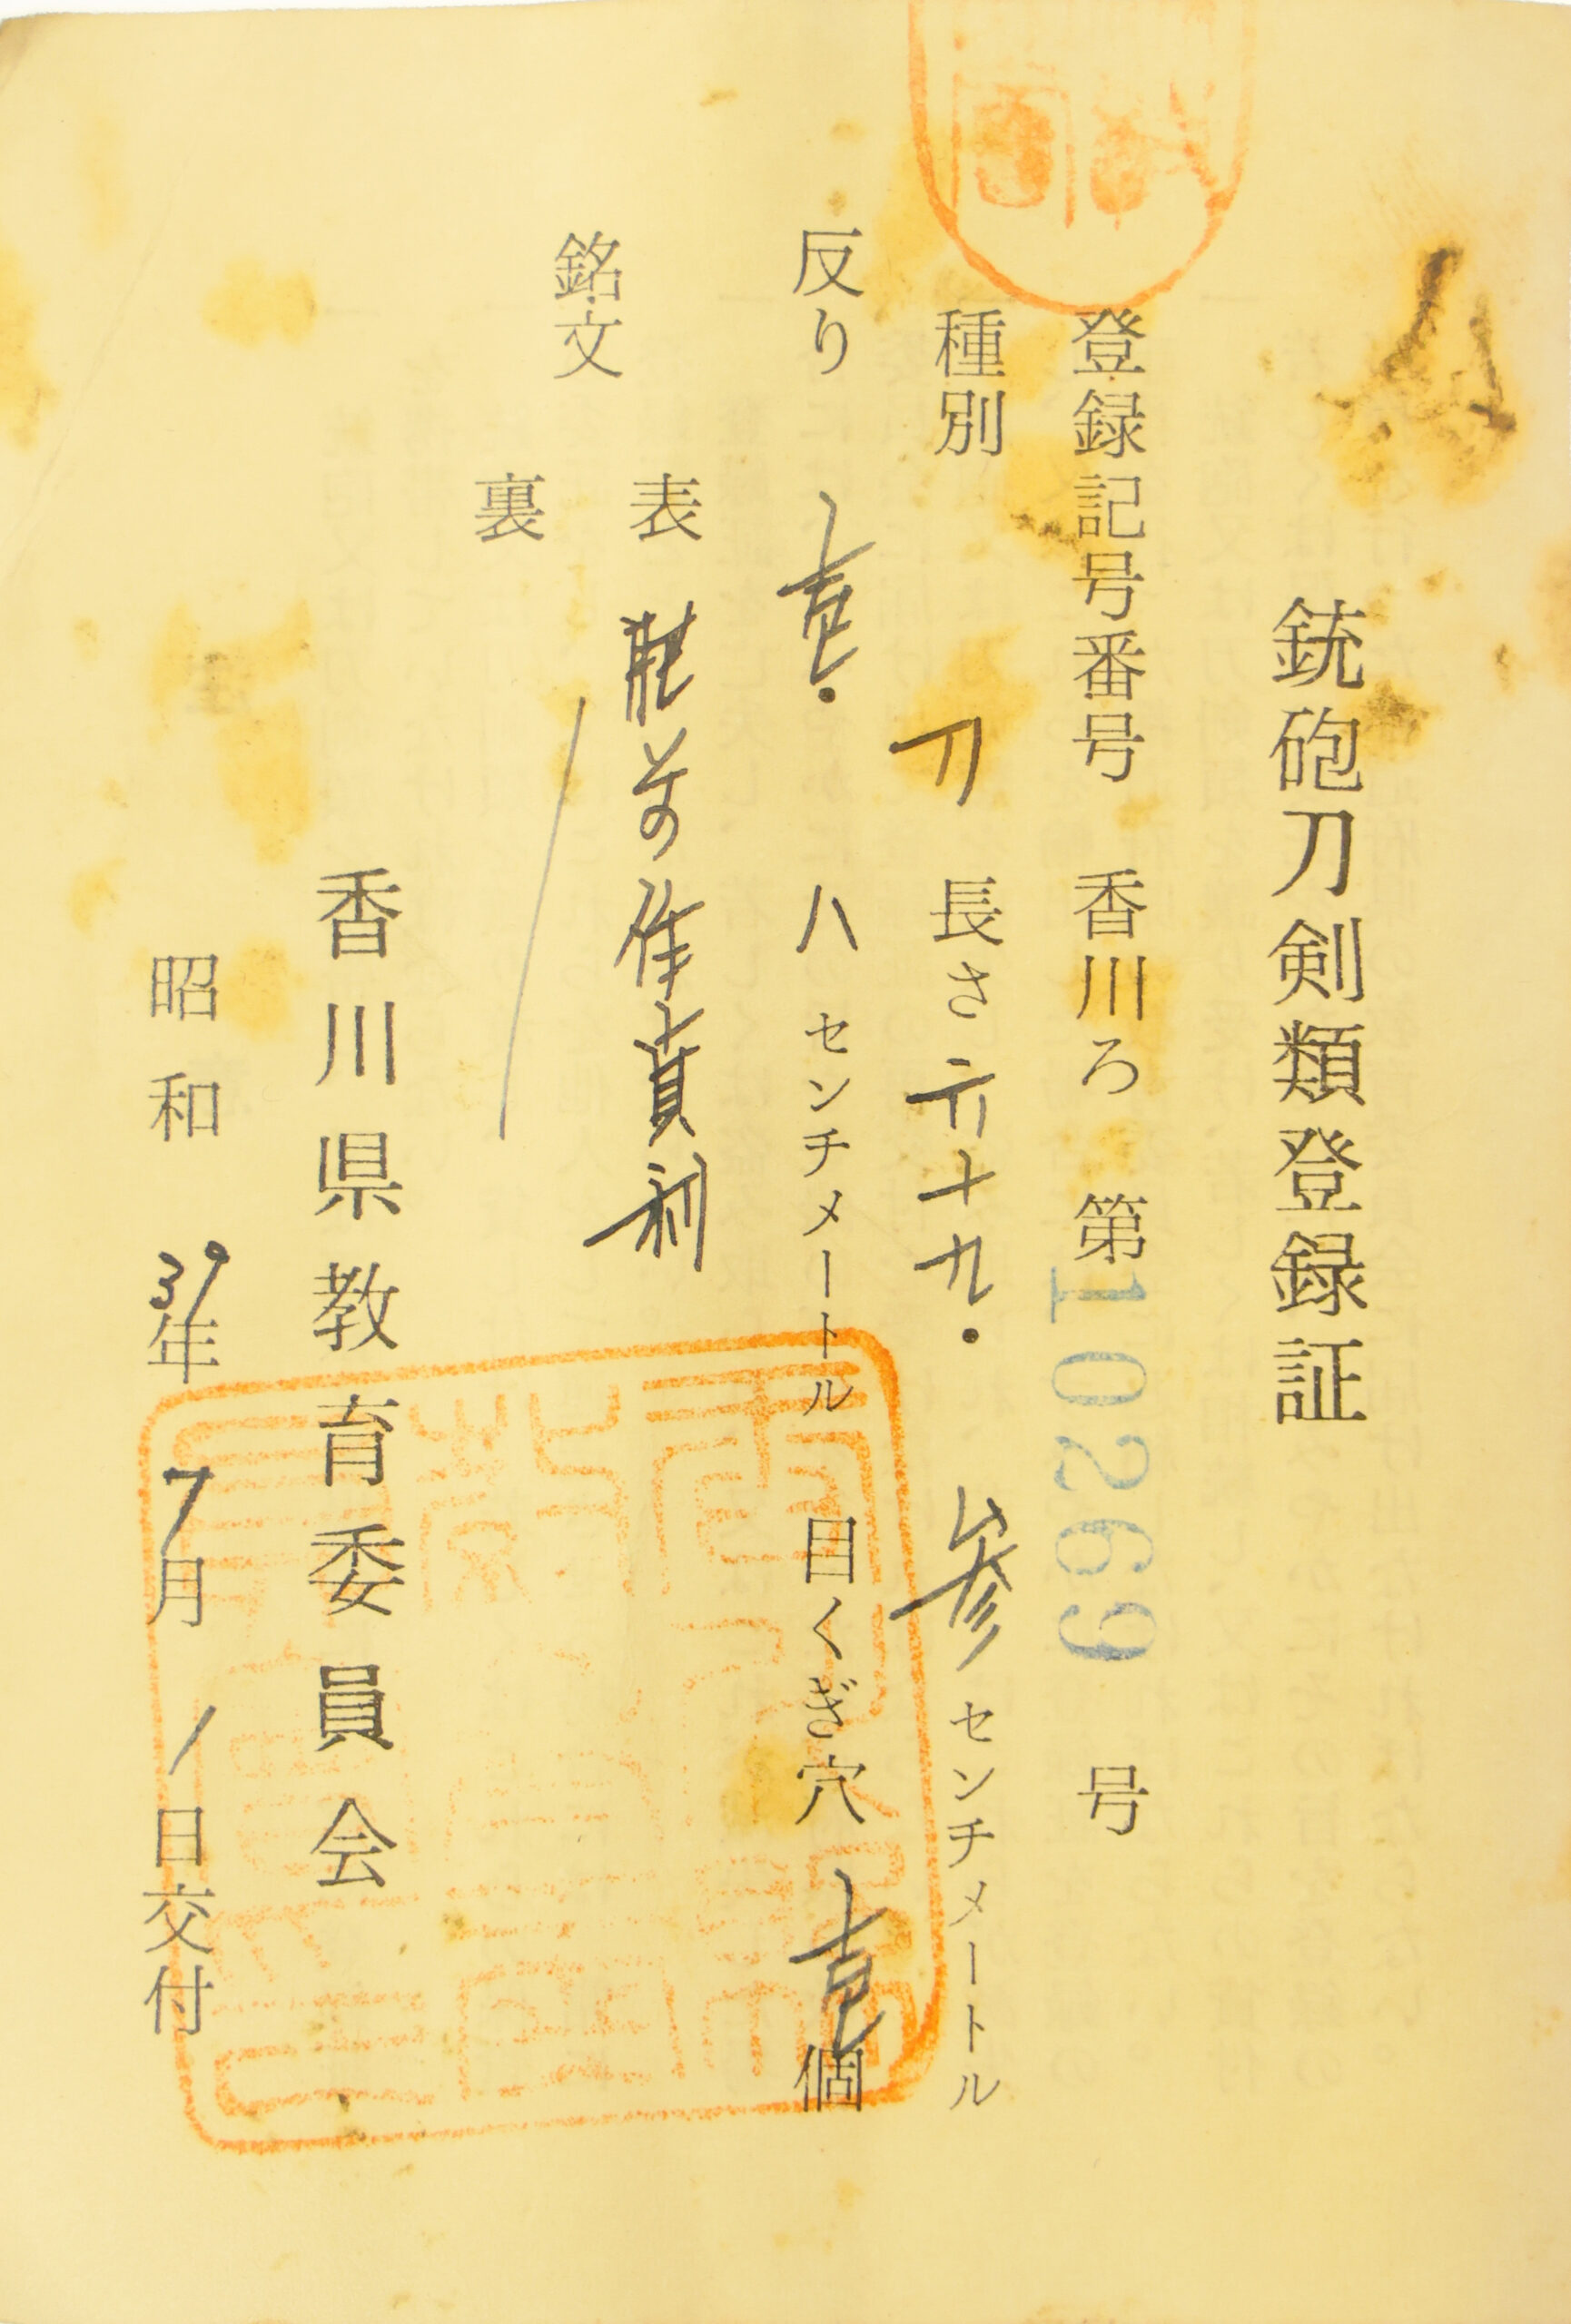 銃砲刀剣類登録証
登録記号番号 香川ろ 第10269号
種別 刀 長さ 六十九・参センチメートル
反り 壹・八センチメートル 目くぎ穴 壹個
銘文
表 肥前 作貞利
裏
香川県教育委員会
昭和39年7月1日交付